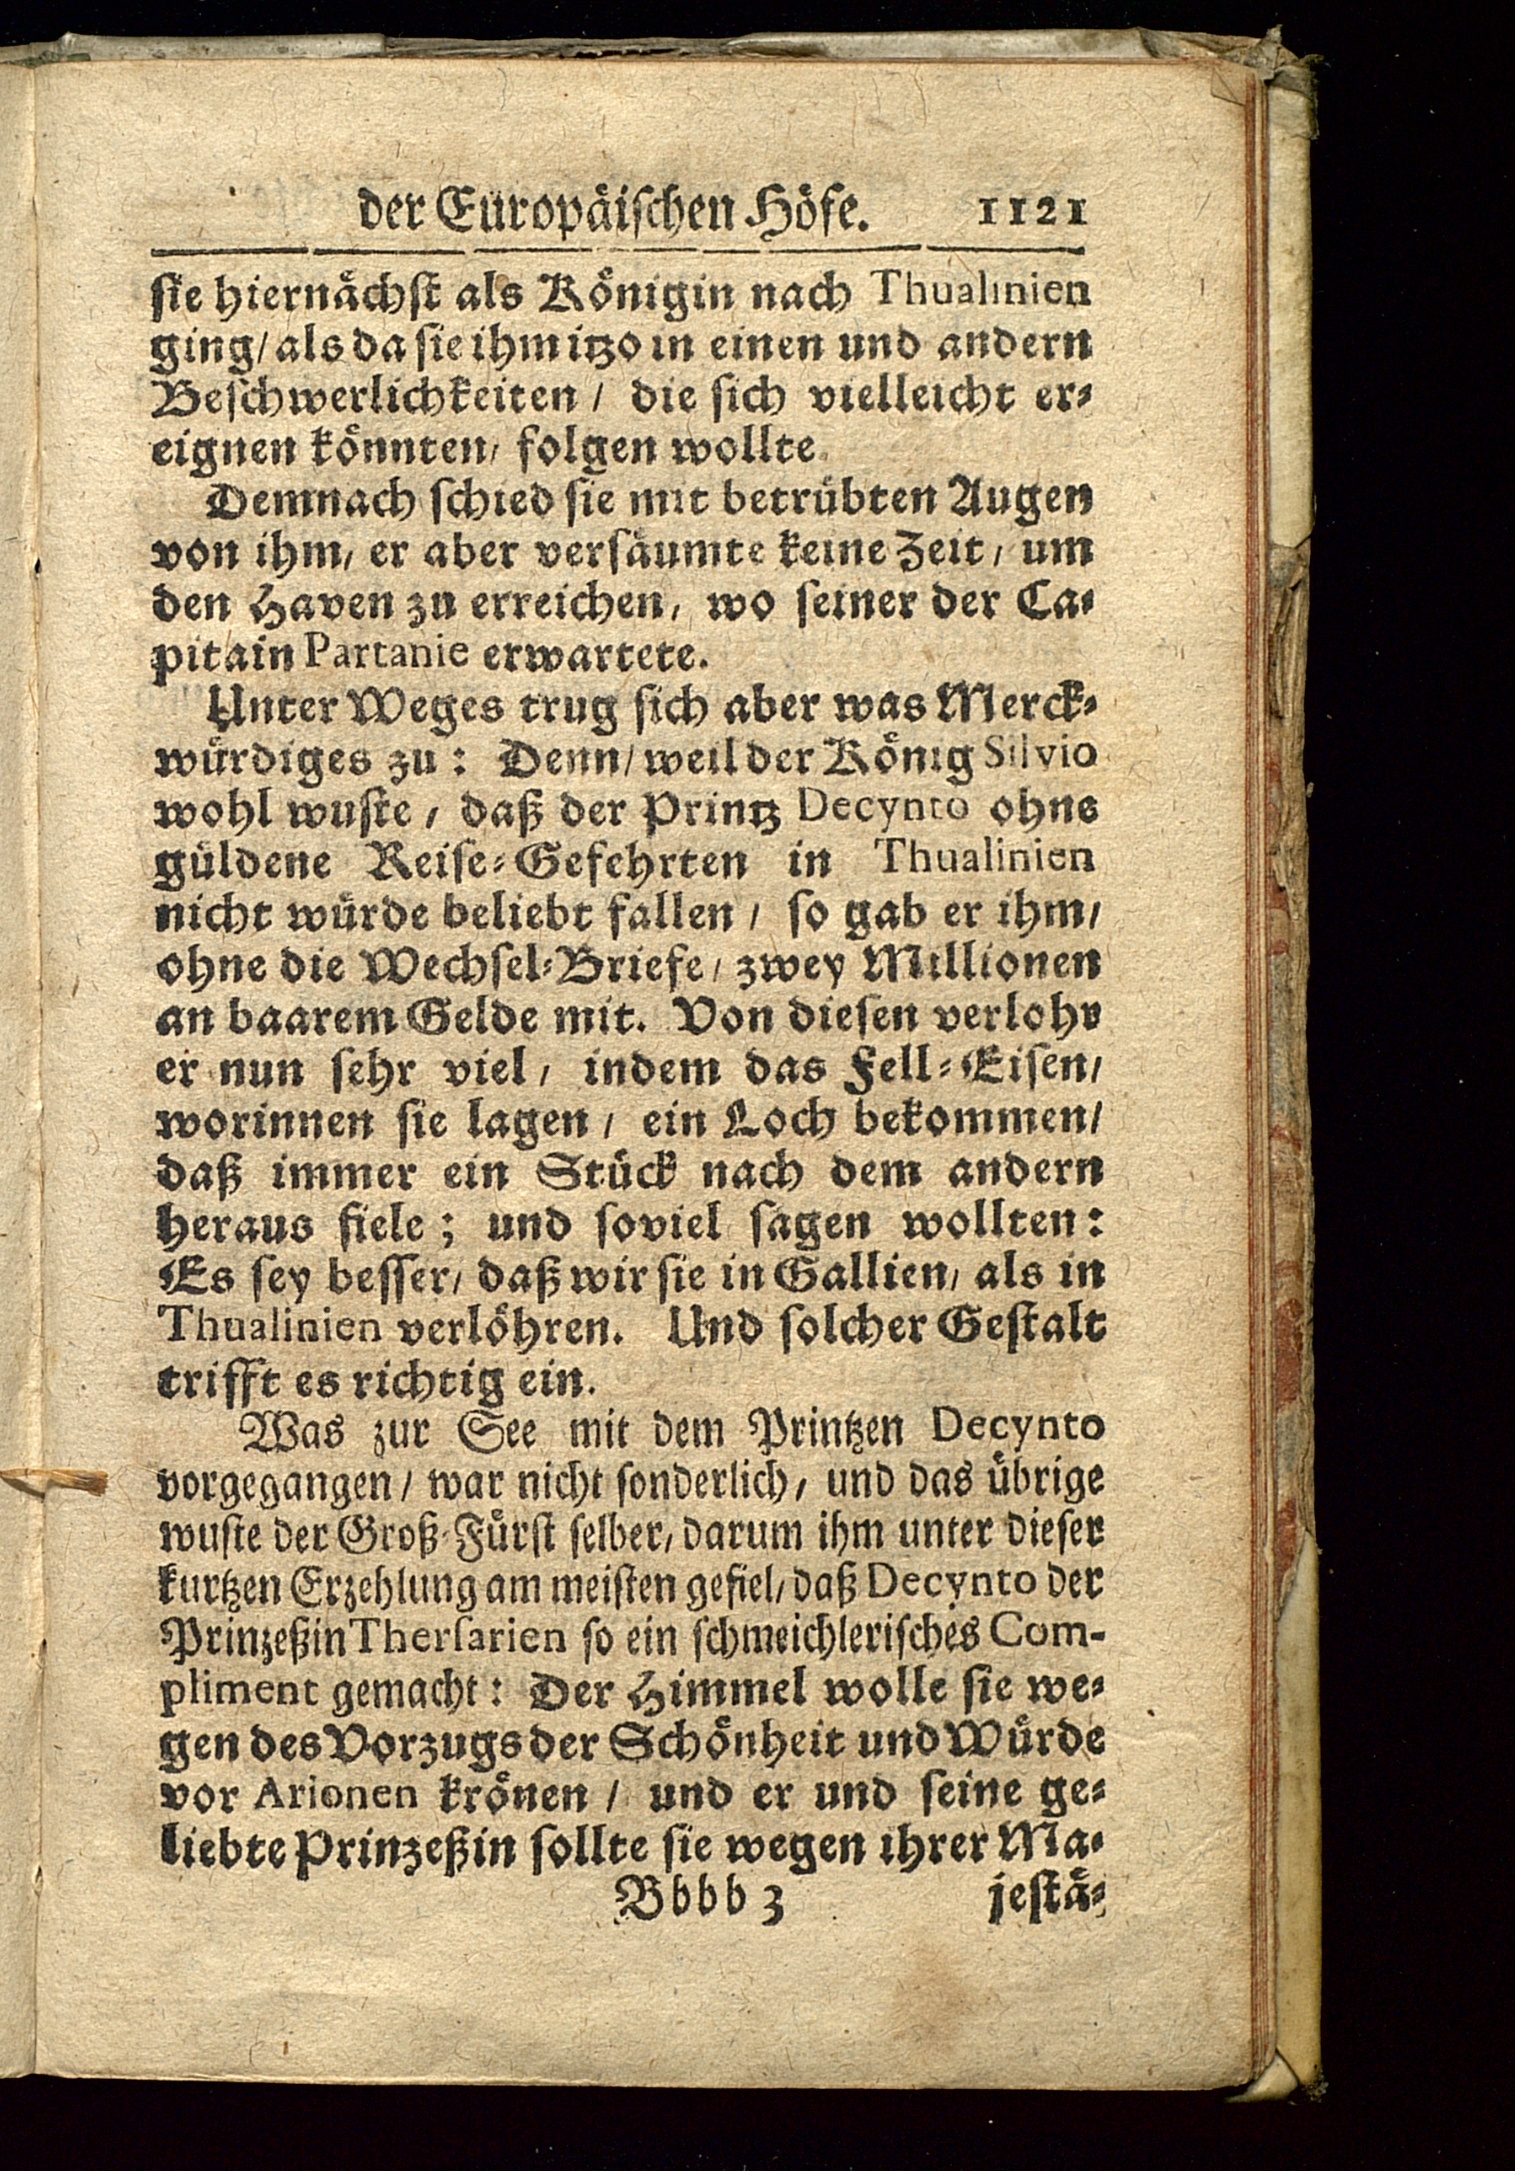 der Europäiſchen Höfe. 1121
ſie hiernächſt als Königin nach Thualinien
ging/ als da ſie ihm itzo in einen und andern
Beſchwerlichkeiten / die ſich vielleicht er⸗
eignen könnten/ folgen wollte.
Demnach ſchied ſie mit betrübten Augen
von ihm/ er aber verſäumte keine Zeit / um
den Haven zu erreichen / wo ſeiner der Ca⸗
pitain Partanie erwartete.
Unter Weges trug ſich aber was Merck⸗
würdiges zu: Denn/ weil der König Silvio
wohl wuſte / daß der Printz Decynto ohne
güldene Reiſe⸗Gefehrten in Thualinien
nicht würde beliebt fallen / ſo gab er ihm/
ohne die Wechſel⸗Briefe / zwey Millionen
an baarem Gelde mit. Von dieſen verlohr
er nun ſehr viel / indem das Fell⸗Eiſen/
worinnen ſie lagen / ein Loch bekommen/
daß immer ein Stück nach dem andern
heraus fiele; und ſoviel ſagen wollten:
Es ſey beſſer/ daß wir ſie in Gallien/ als in
Thualinien verlöhren. Und ſolcher Geſtalt
trifft es richtig ein.
Was zur See mit dem Printzen Decynto
vorgegangen / war nicht ſonderlich / und das übrige
wuſte der Groß⸗Fürſt ſelber/ darum ihm unter dieſer
kurtzen Erzehlung am meiſten gefiel/ daß Decynto der
Prinzeßin Therſarien ſo ein ſchmeichleriſches Com-
pliment gemacht: Der Himmel wolle ſie we⸗
gen des Vorzugs der Schönheit und Würde
vor Arionen krönen / und er und ſeine ge⸗
liebte Prinzeßin ſollte ſie wegen ihrer Ma⸗
Bbbb 3 jeſtä⸗